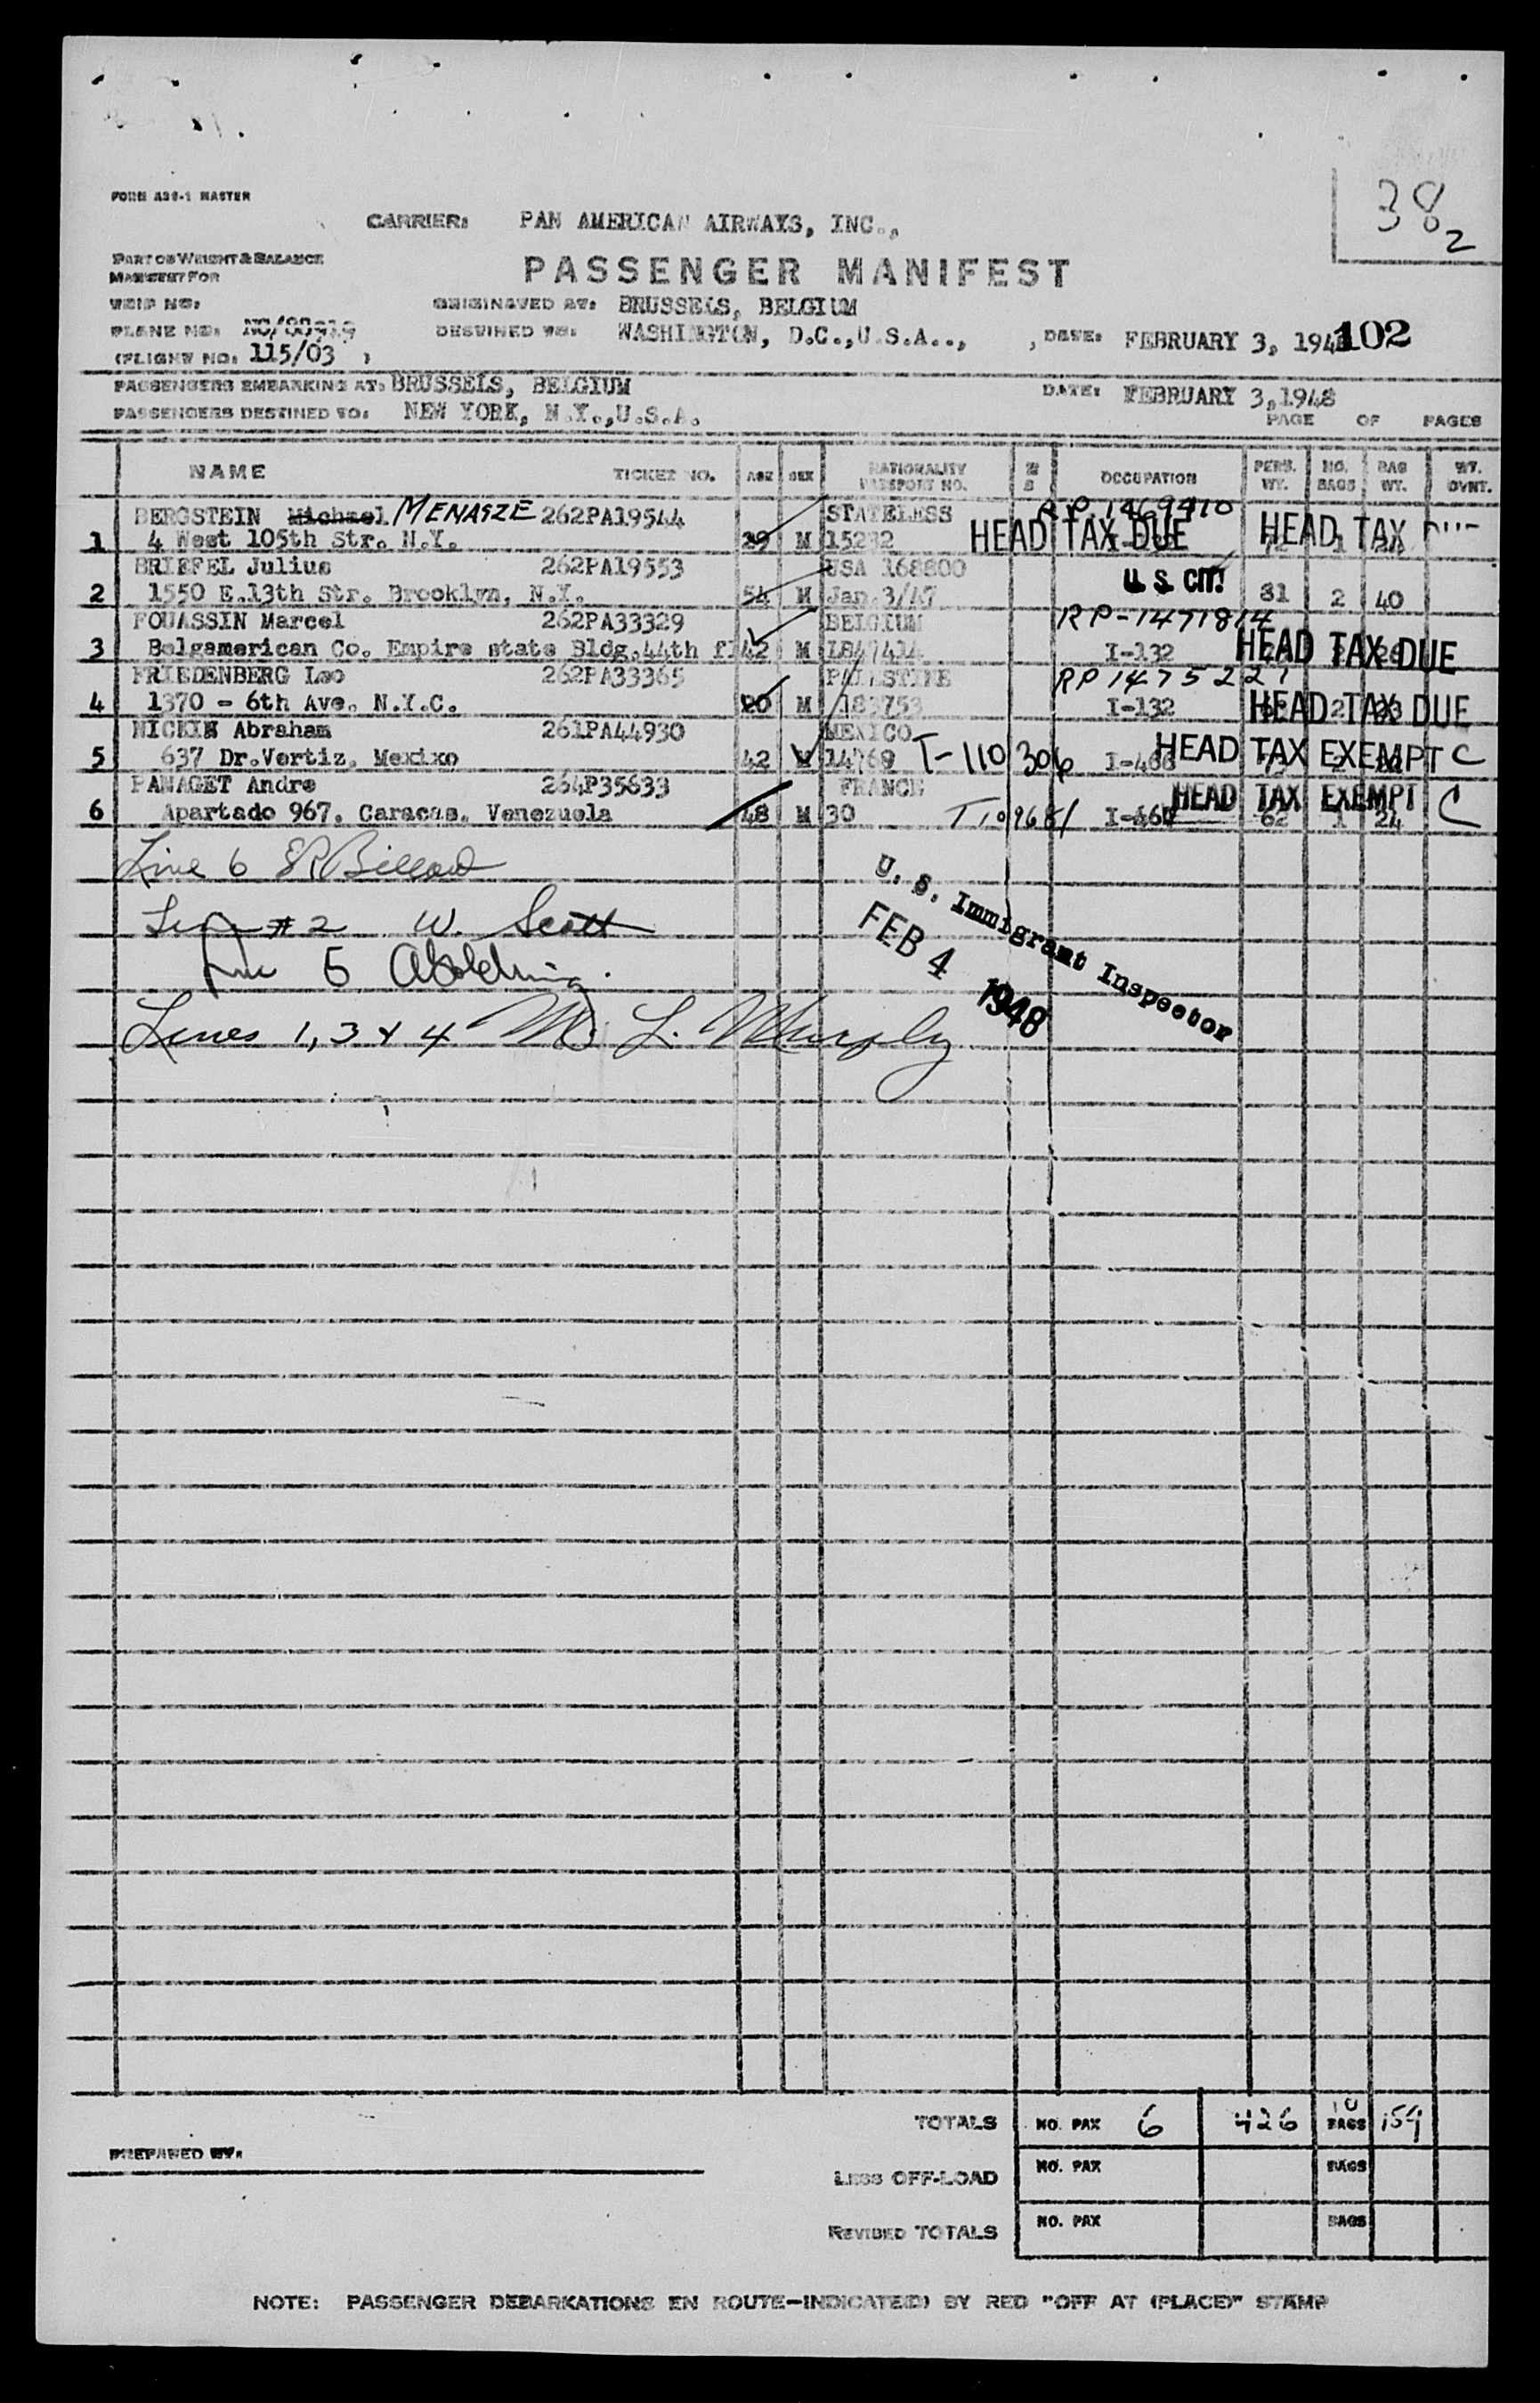 FORM A36-1 MASTER
38
2
CARRIER: PAN AMERICAN AIRWAYS, INC.,
PART OF WEIGHT & BALANCE
MANIFEST FOR
PASSENGER MANIFEST
TRIP NO:
ORIGINATED AT: BRUSSELS, BELGIUM
PLANE NO: NC/88919
DESTINED TO: WASHINGTON, D.C.,U.S.A..,
, DATE: FEBRUARY 3, 194
102
(FLIGHT NO: 115/03 )
PASSENGERS EMBARKING AT: BRUSSELS, BELGIUM
DATE: FEBRUARY 3,1948
PASSENGERS DESTINED TO: NEW YORK, N.Y.,U.S.A.
PAGE OF PAGES
NAME TICKET NO. AGE SEX NATIONALITY PASSPORT NO. OCCUPATION PERS. WT. NO. BAGS BAG WT. WT. OVNT.
BERGSTEIN Michael MENASZE 262PA19544 STATELESS RP 1469410
1 4 West 105th Str. N.Y. 29 M 15232 HEAD TAX DUE HEAD TAX DUE
BRIEFEL Julius 262PA19553 USA 168800
2 1550 E.13th Str. Brooklyn, N.Y. 54 M Jan.3/47 U S CIT! 81 2 40
FOUASSIN Marcel 262PA33329 BELGIUM RP-1471814
3 Belgamerican Co. Empire state Bldg.44th fl 42 M LB47414 I-132 HEAD TAX DUE
FRIEDENBERG Leo 262PA33365 PALESTINE RP 1475221
4 1370 - 6th Ave. N.Y.C. 20 M 183753 I-132 HEAD TAX DUE
NICKIN Abraham 261PA44930 MEXICO
5 637 Dr.Vertiz, Mexixo 42 M 14769 T-110306 HEAD TAX EXEMPT C
PANAGET Andre 264P35633 FRANCE
6 Apartado 967. Caracas. Venezuela 48 M 30 T109681 HEAD TAX EXEMPT C 62 1 24
Line 6
Line #2 W. Scott
Line 5
Lines 1, 3 & 4 M. L. Murphy
U. S. Immigrant Inspector
FEB 4 1948
TOTALS NO. PAX 6 426 10 BAGS 159
PREPARED BY:
LESS OFF-LOAD NO. PAX BAGS
REVISED TOTALS NO. PAX BAGS
NOTE: PASSENGER DEBARKATIONS EN ROUTE-INDICATE(D) BY RED "OFF AT (PLACE)" STAMP